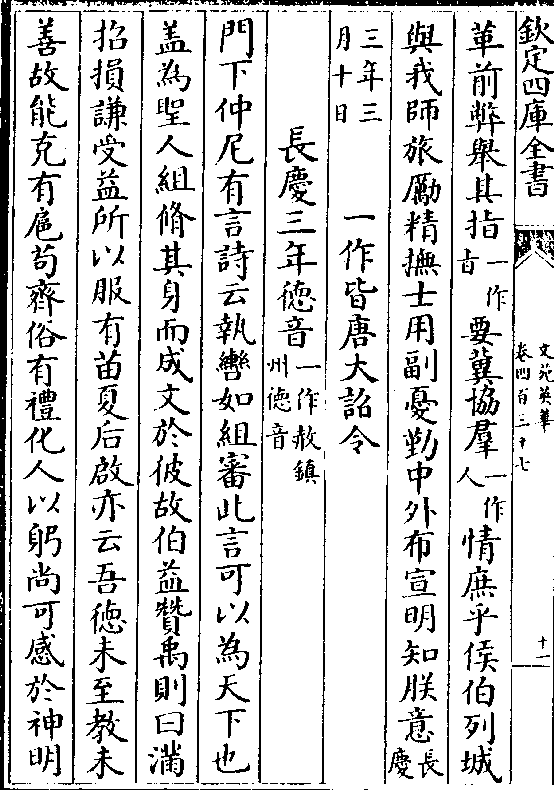 欽定四庫全書
文苑英華
卷四百三十七
十一
革前弊舉其指一作旨要冀協羣一作人情庶乎侯伯列城
與我師旅勵精撫士用副憂勤中外布宣明知朕意長慶
三年三月十日　一作皆唐大詔令
長慶三年德音一作赦鎮州德音
門下仲尼有言詩云執轡如組審此言可以為天下也
盖為聖人組脩其身而成文於彼故伯益贊禹則曰滿
招損謙受益所以服有苗夏后啟亦云吾德未至教未
善故能克有扈苟齊俗有禮化人以躬尚可感於神明